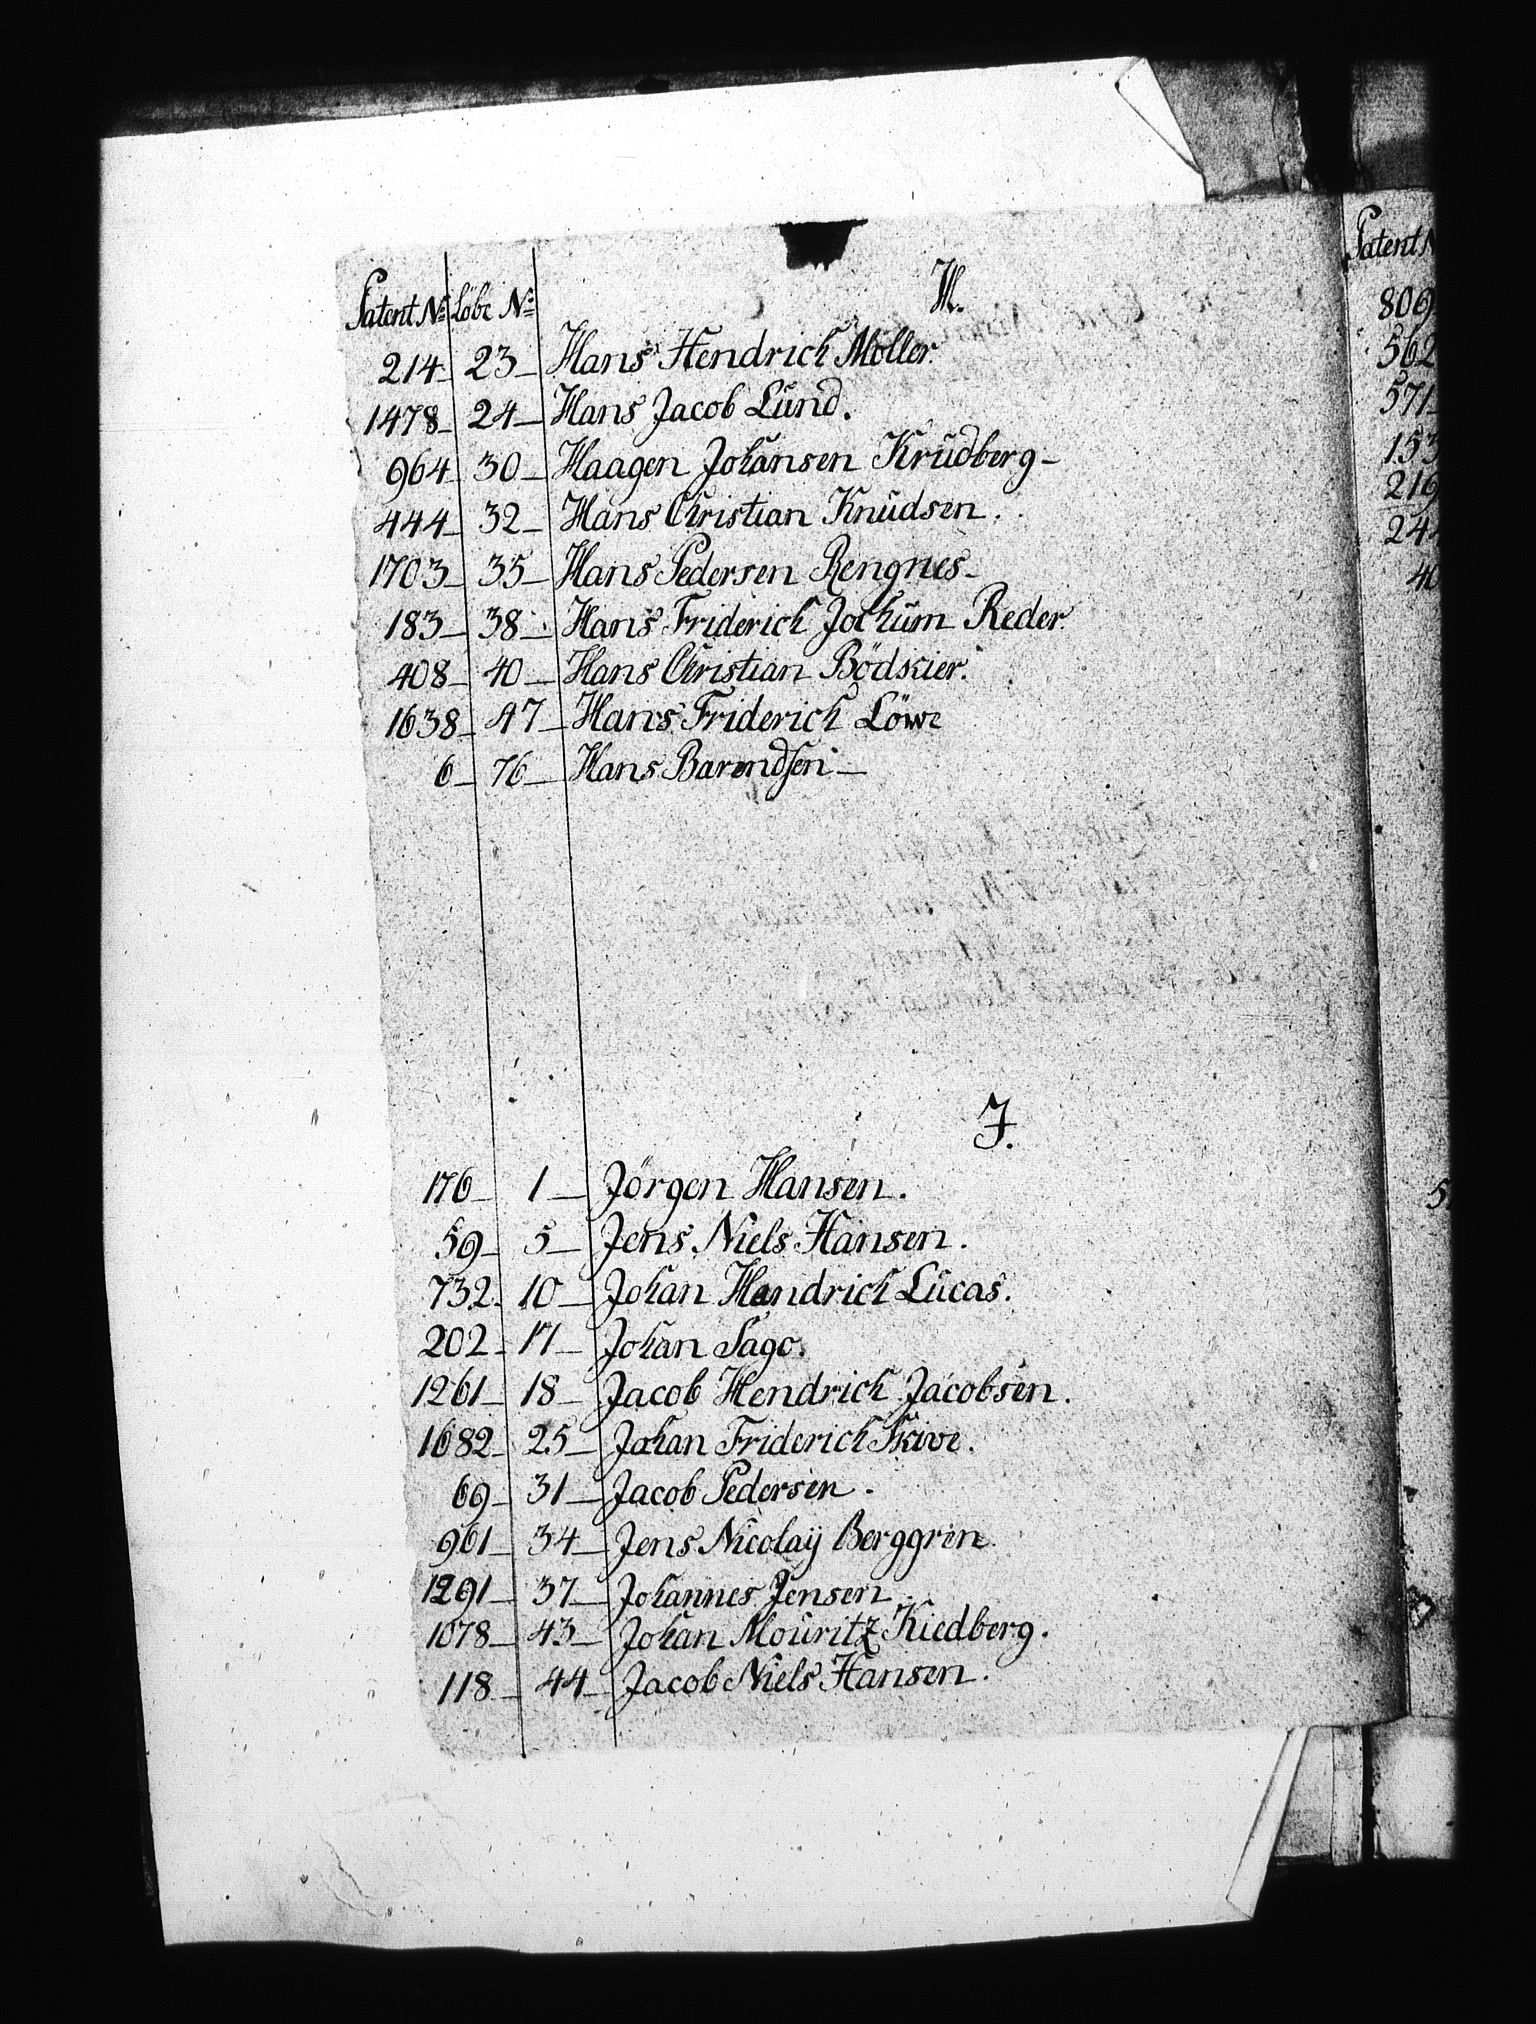 Patent No Löbe No
H.
214 - 23 - Hans Hendrich Möller.
1478 - 24 - Hans Jacob Lund.
964 - 30 - Haagen Johansen Krudberg -
444 - 32 - Hans Christian Knudsen.
1703 - 35 - Hans Pedersen Rengnes -
183 - 38 - Hans Friderich Jochum Reder.
408 - 40 - Hans Christian Bödskier.
1638 - 47 - Hans Friderich Löwe
6 - 76 - Hans Barendsen -
J.
176 - 1 - Jörgen Hansen.
59 - 5 - Jens Niels Hansen.
732 - 10 - Johan Hendrich Lucas.
202 - 17 - Johan Sago.
1261 - 18 - Jacob Hendrich Jacobsen.
1682 - 25 - Johan Friderich Skive.
69 - 31 - Jacob Pedersen.
961 - 34 - Jens Nicolaÿ Berggren.
1291 - 37 - Johannes Jensen.
1078 - 43 - Johan Mouritz Kiedberg.
118 - 44 - Jacob Niels Hansen.
Patent N
809
562
571
153
219